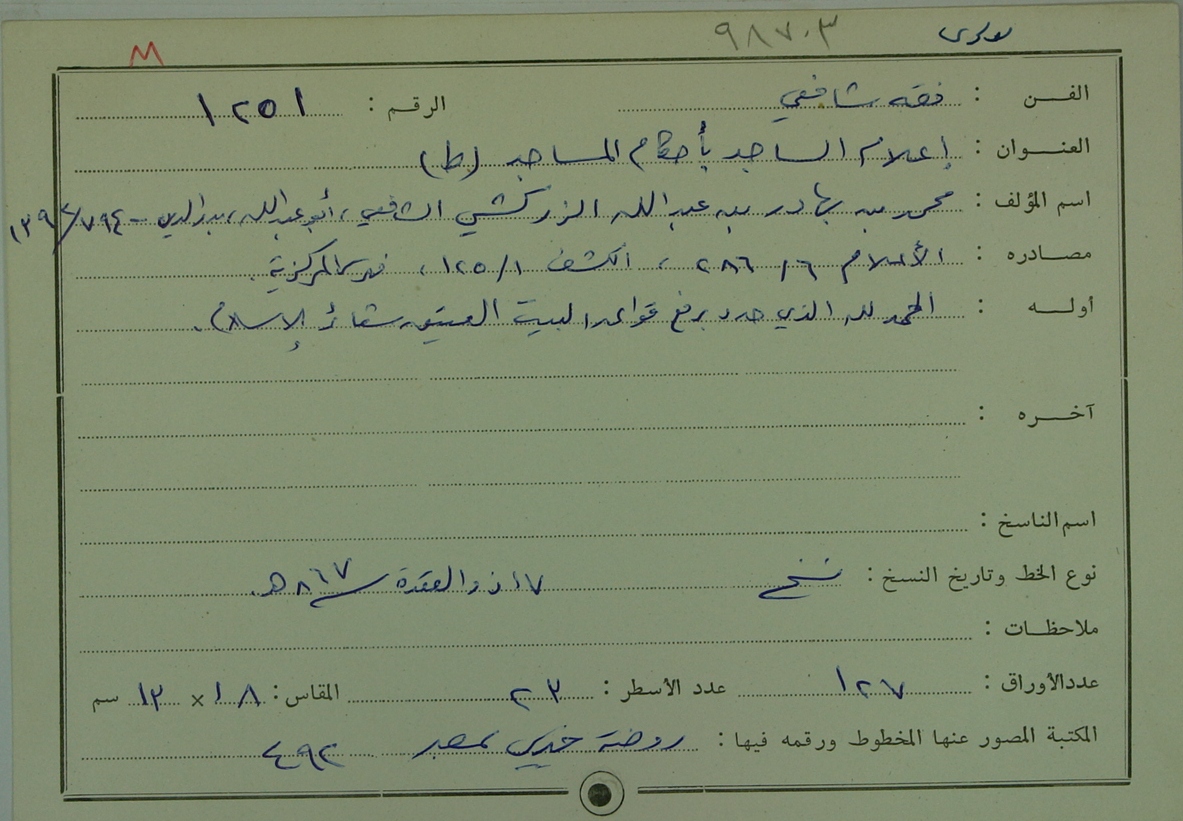 ٩٨٧٠٣
M
الفن : فقه شافعي الرقم : ١٢٥١
العنوان : إعلام الساجد بأحكام المساجد (ط)
اسم المؤلف : محمد بن بهادر بن عبد الله الزركشي الشافعي ، أبو عبد الله ، بدر الدين - ٧٩٤/١٣٩٢
مصادره : الأعلام ٢٨٦/٦ ، الكشف ١٢٥/١ ، فهر المركزية .
أوله : الحمد لله الذي حدد برفع قواعد البيت العتيق شعائر الإسلام .
آخره :
اسم الناسخ :
نوع الخط وتاريخ النسخ : نسخ ١٧ ذو القعدة ٨٦٧ هـ .
ملاحظات :
عدد الأوراق : ١٢٧ عدد الأسطر : ٢٣ المقاس : ١٨ × ١٣ سم
المكتبة المصور عنها المخطوط ورقمه فيها : روضة خيري بمصر ٤٩٢